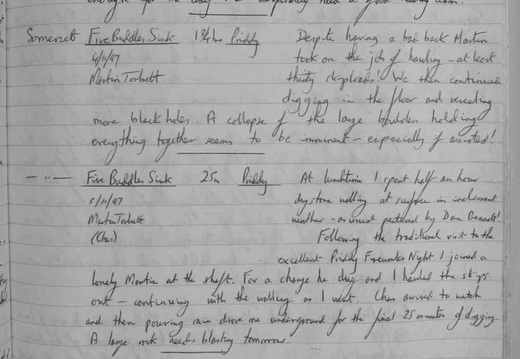 Somerset Five Buddles Sink 1¾hrs Priddy Despite having a bad back Martin
4/11/97 took on the job of hauling - at least
Martin Torbett thirty skiploads! We then continued
digging in the floor and revealing
more black holes. A collapse of the large boulder holding
everything together seems to be imminent - especially if assisted!
— " — Five Buddles Sink 25m Priddy At lunchtime I spent half an hour
5/11/97 drystone walling at surface in inclement
Martin Torbett weather - as usual
(Chas) Following the traditional visit to the
excellent Priddy Fireworks Night I joined a
lonely Martin at the shaft. For a change he dug and I hauled the skips
out - continuing with the walling as I went. Chas arrived to watch
and then pouring rain drove me underground for the final 25 minutes of digging.
A large rock needs blasting tomorrow.